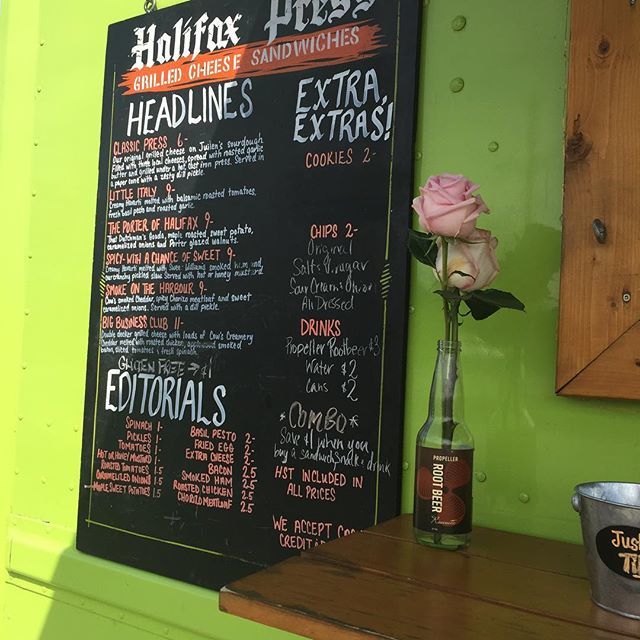 Halifax Press
GRILLED CHEESE SANDWICHES
HEADLINES
CLASSIC PRESS 6-
Our original grilled cheese on Julien's sourdough
filled with three local cheeses, spread with roasted garlic
butter and grilled under a hot cast iron press. Served in
a paper cone with a zesty dill pickle.
LITTLE ITALY 9-
Creamy Havarti melted with balsamic roasted tomatoes,
fresh basil pesto and roasted garlic.
THE PORTER OF HALIFAX 9-
That Dutchman's Gouda, maple roasted sweet potato,
caramelized onions and Porter glazed walnuts.
SPICY WITH A CHANCE OF SWEET 9-
Creamy Havarti melted with Swiss, Williams smoked ham, and
crunchy pickled slaw. Served with hot or honey mustard
SMOKE ON THE HARBOUR 9-
Cow's smoked Cheddar, spicy Chorizo meatloaf and sweet
caramelized onions. Served with a dill pickle.
BIG BUSINESS CLUB 11-
Double decker grilled cheese with loads of Cow's Creamery
Cheddar melted with roasted chicken, applewood smoked
bacon, sliced tomatoes & fresh spinach.
GLUTEN FREE → $1
EDITORIALS
SPINACH 1-
PICKLES 1-
TOMATOES 1-
HOT OR HONEY MUSTARD 1-
ROASTED TOMATOES 1.5
CARAMELIZED ONIONS 1.5
MAPLE SWEET POTATOES 1.5
BASIL PESTO 2-
FRIED EGG 2-
EXTRA CHEESE 2-
BACON 2.5
SMOKED HAM 2.5
ROASTED CHICKEN 2.5
CHORIZO MEATLOAF 2.5
EXTRA,
EXTRAS!
COOKIES 2-
CHIPS 2-
Original
Salt & Vinegar
Sour Cream & Onion
All Dressed
DRINKS
Propeller Rootbeer $3
Water $2
Cans $2
*COMBO*
Save $1 when you
buy a sandwich, snack & drink
HST INCLUDED IN
ALL PRICES
WE ACCEPT
CREDIT &
PROPELLER
ROOT BEER
Just